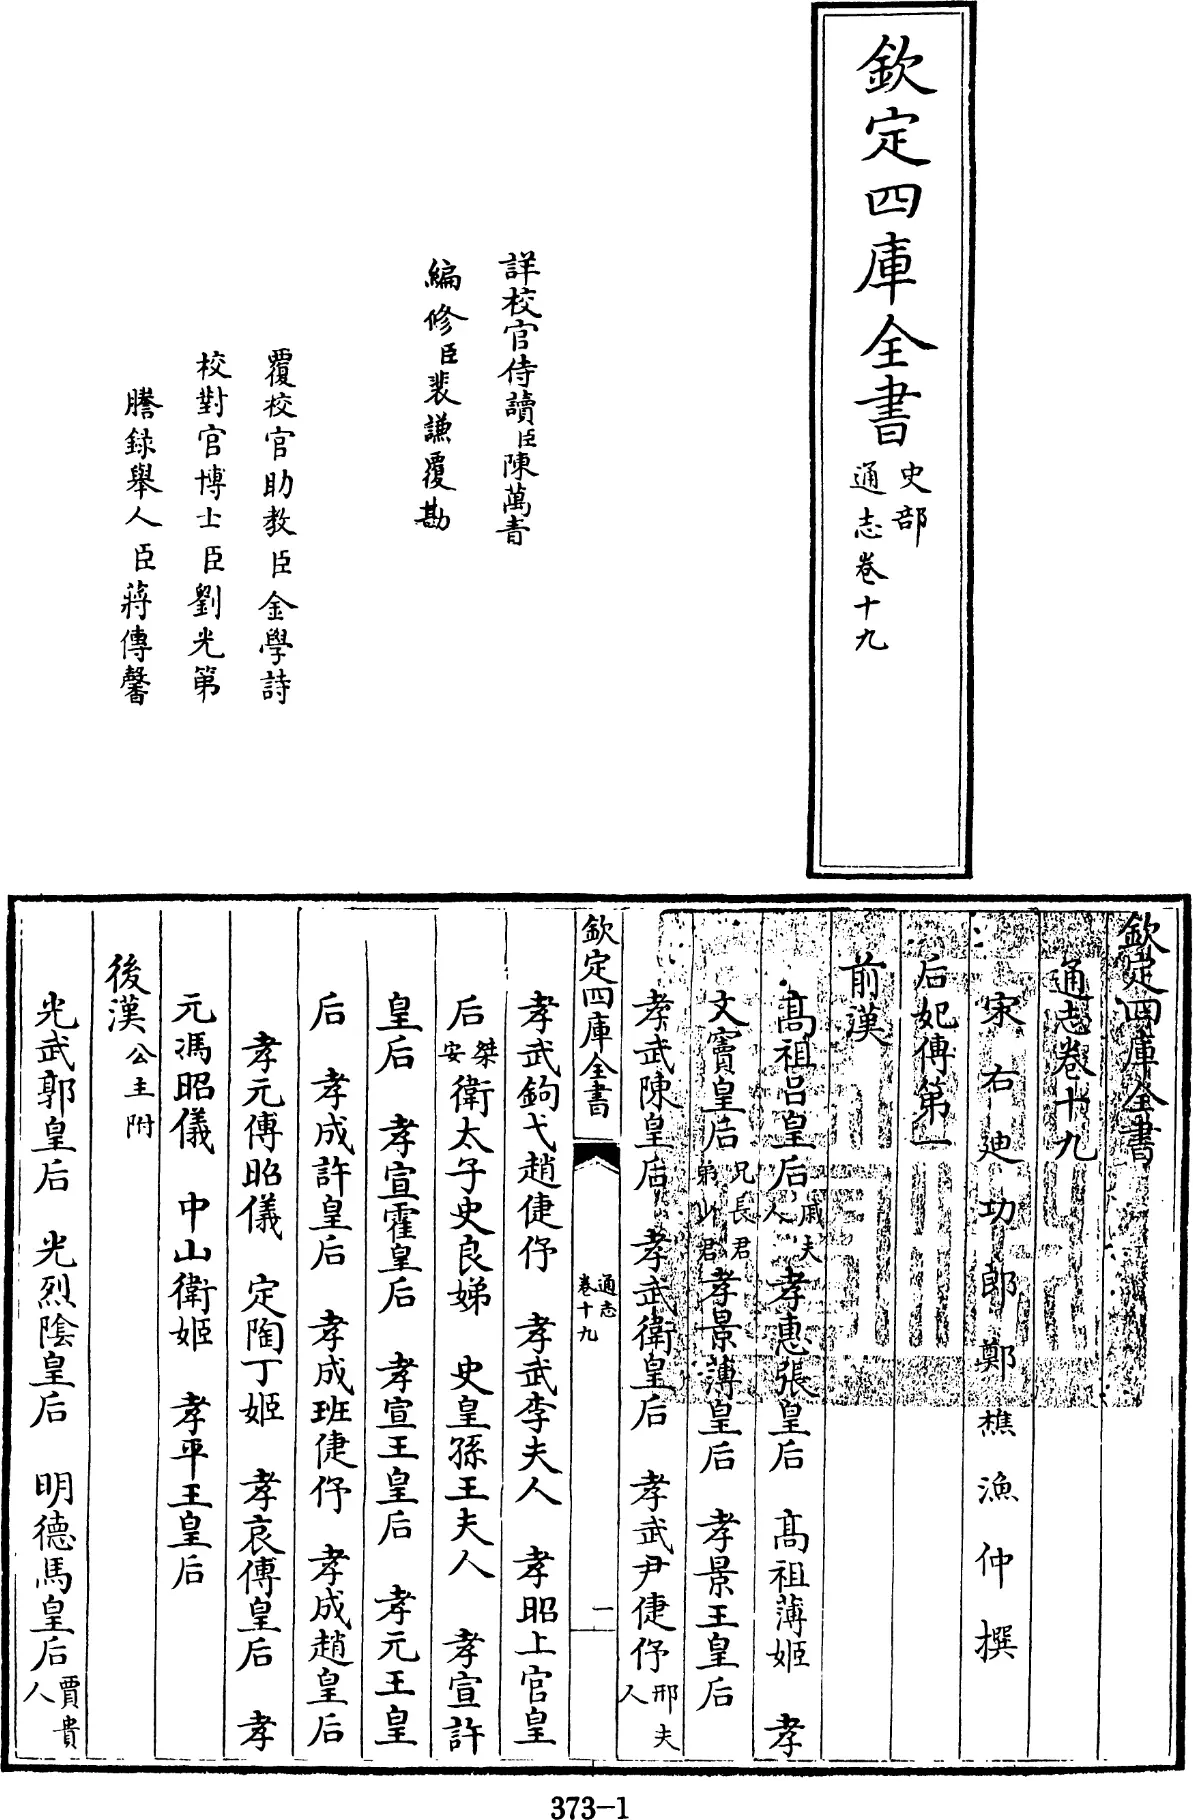 欽定四庫全書
史部
通志卷十九
詳校官侍讀臣陳萬青
編修臣裴謙覆勘
覆校官助教臣金學詩
校對官博士臣劉光第
謄録舉人臣蔣傳馨
欽定四庫全書
通志卷十九
宋右迪功郎鄭樵漁仲撰
后妃傳第一
前漢
髙祖吕皇后戚夫人 孝惠張皇后 髙祖薄姬 孝
文竇皇后兄長君弟少君 孝景薄皇后 孝景王皇后
孝武陳皇后 孝武衛皇后 孝武尹倢伃邢夫人
欽定四庫全書
通志
卷十九
一
孝武鉤弋趙倢伃 孝武李夫人 孝昭上官皇
后桀安 衛太子史良娣 史皇孫王夫人 孝宣許
皇后 孝宣霍皇后 孝宣王皇后 孝元王皇
后 孝成許皇后 孝成班倢伃 孝成趙皇后
孝元傅昭儀 定陶丁姬 孝哀傅皇后 孝
元馮昭儀 中山衛姬 孝平王皇后
後漢公主附
光武郭皇后 光烈陰皇后 明德馬皇后賈貴人
373-1